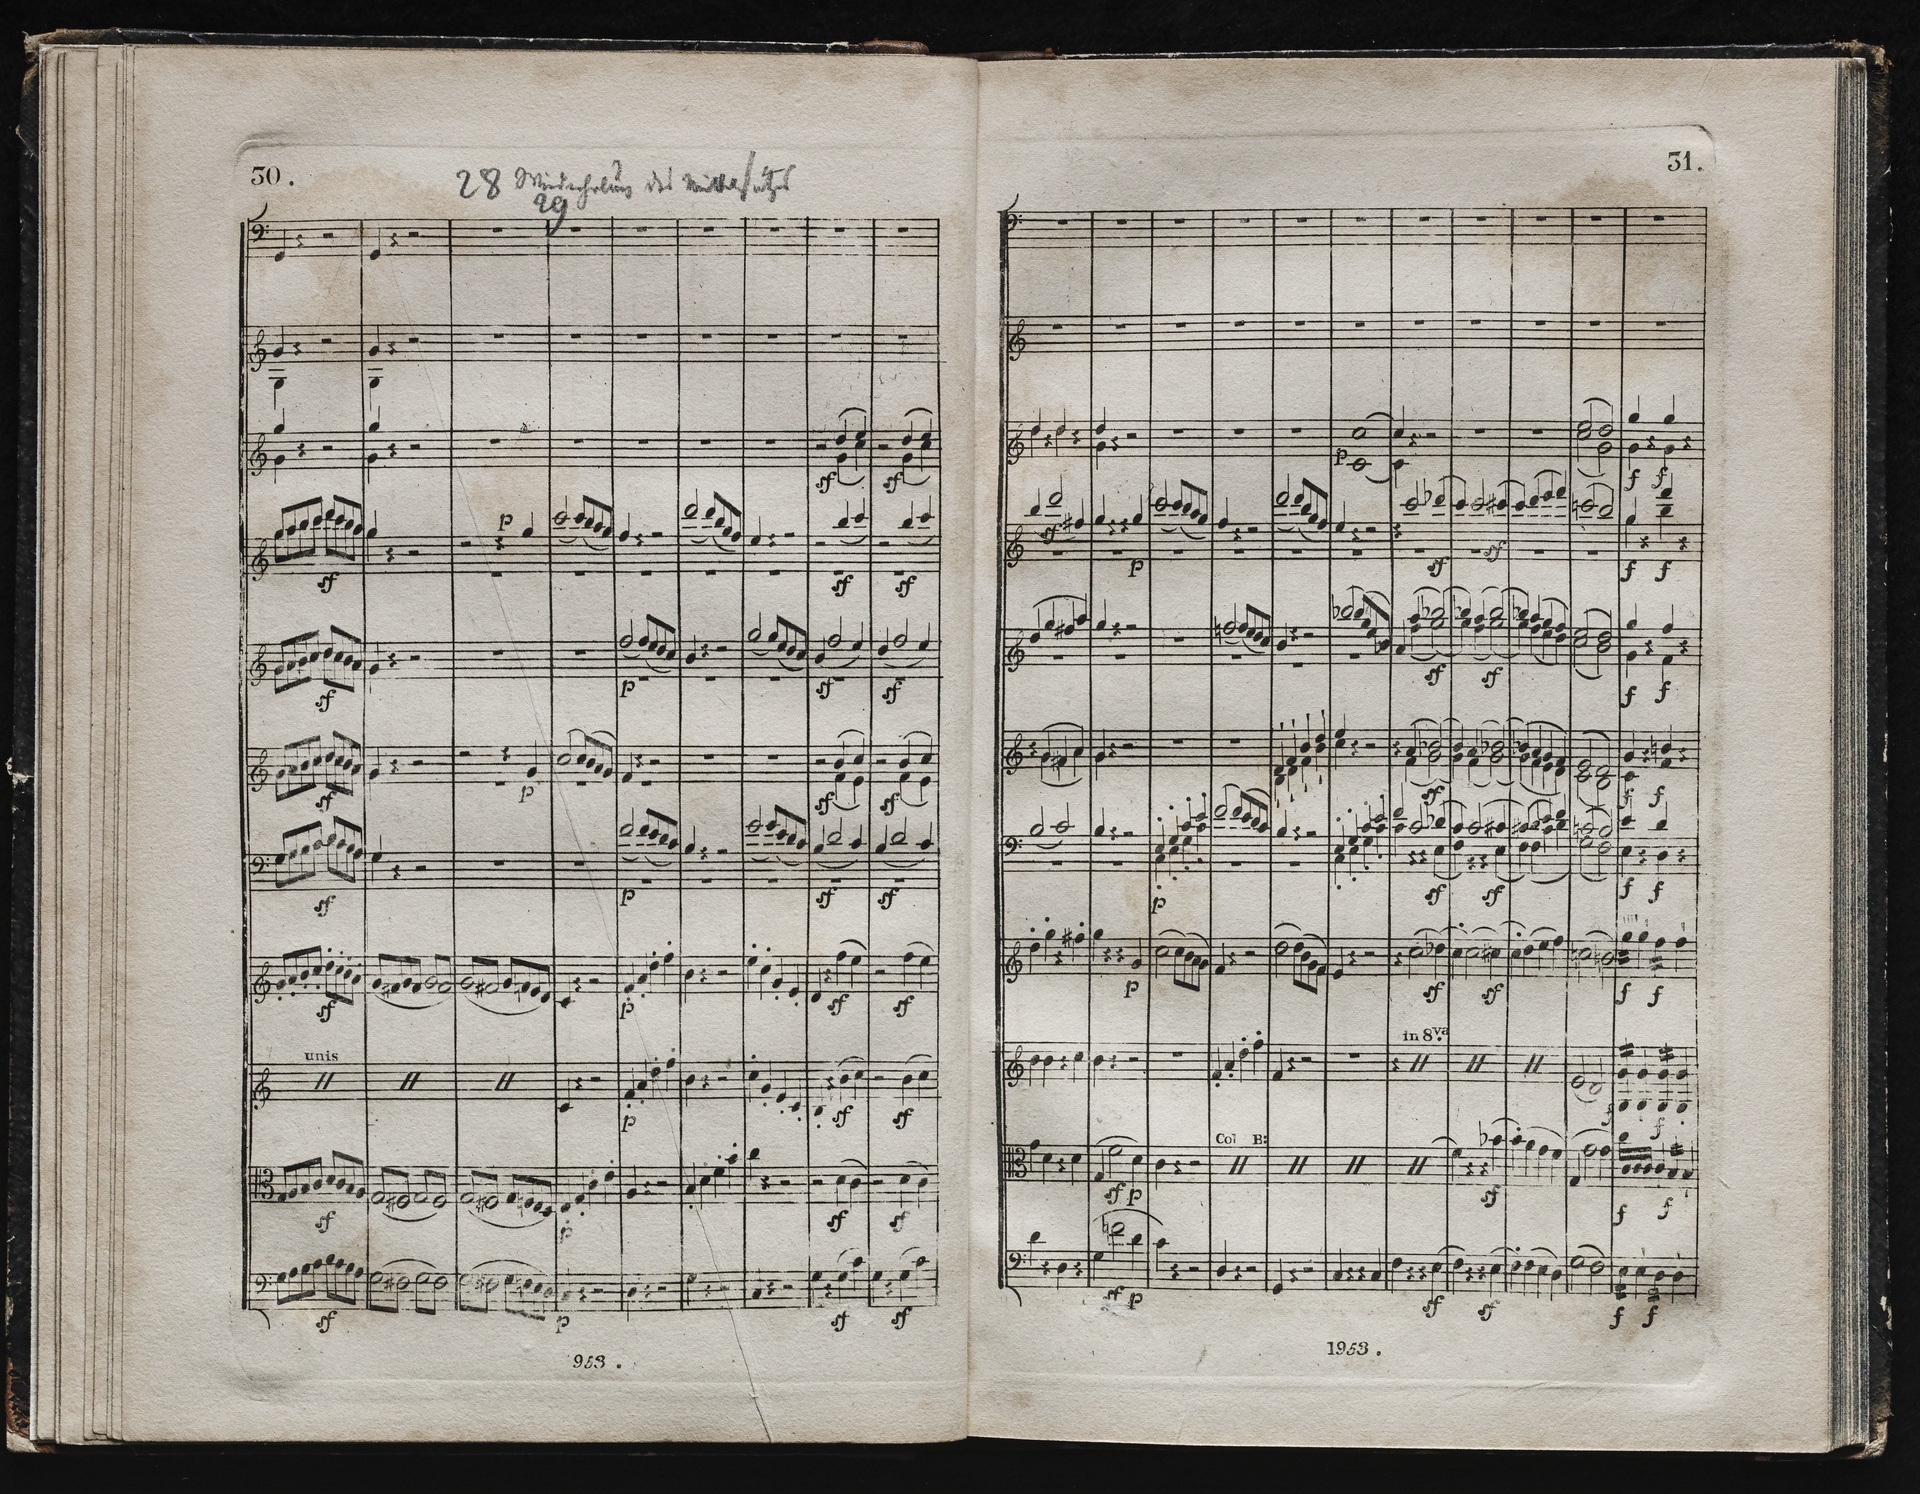 30.
28 Wiederholung des Mittelsatzes
29
sf sf sf
p
sf sf sf
sf p sf sf
sf p sf sf
sf p sf sf
sf p sf sf
unis
p sf sf
sf p sf sf
sf p sf sf
953.
31.
p f f
sf p sf sf f f
sf sf f f
sf f f
p sf sf f f
p sf sf f f
in 8va
f f
Col B:
sf p sf f f
sf p sf sf f f
1953.